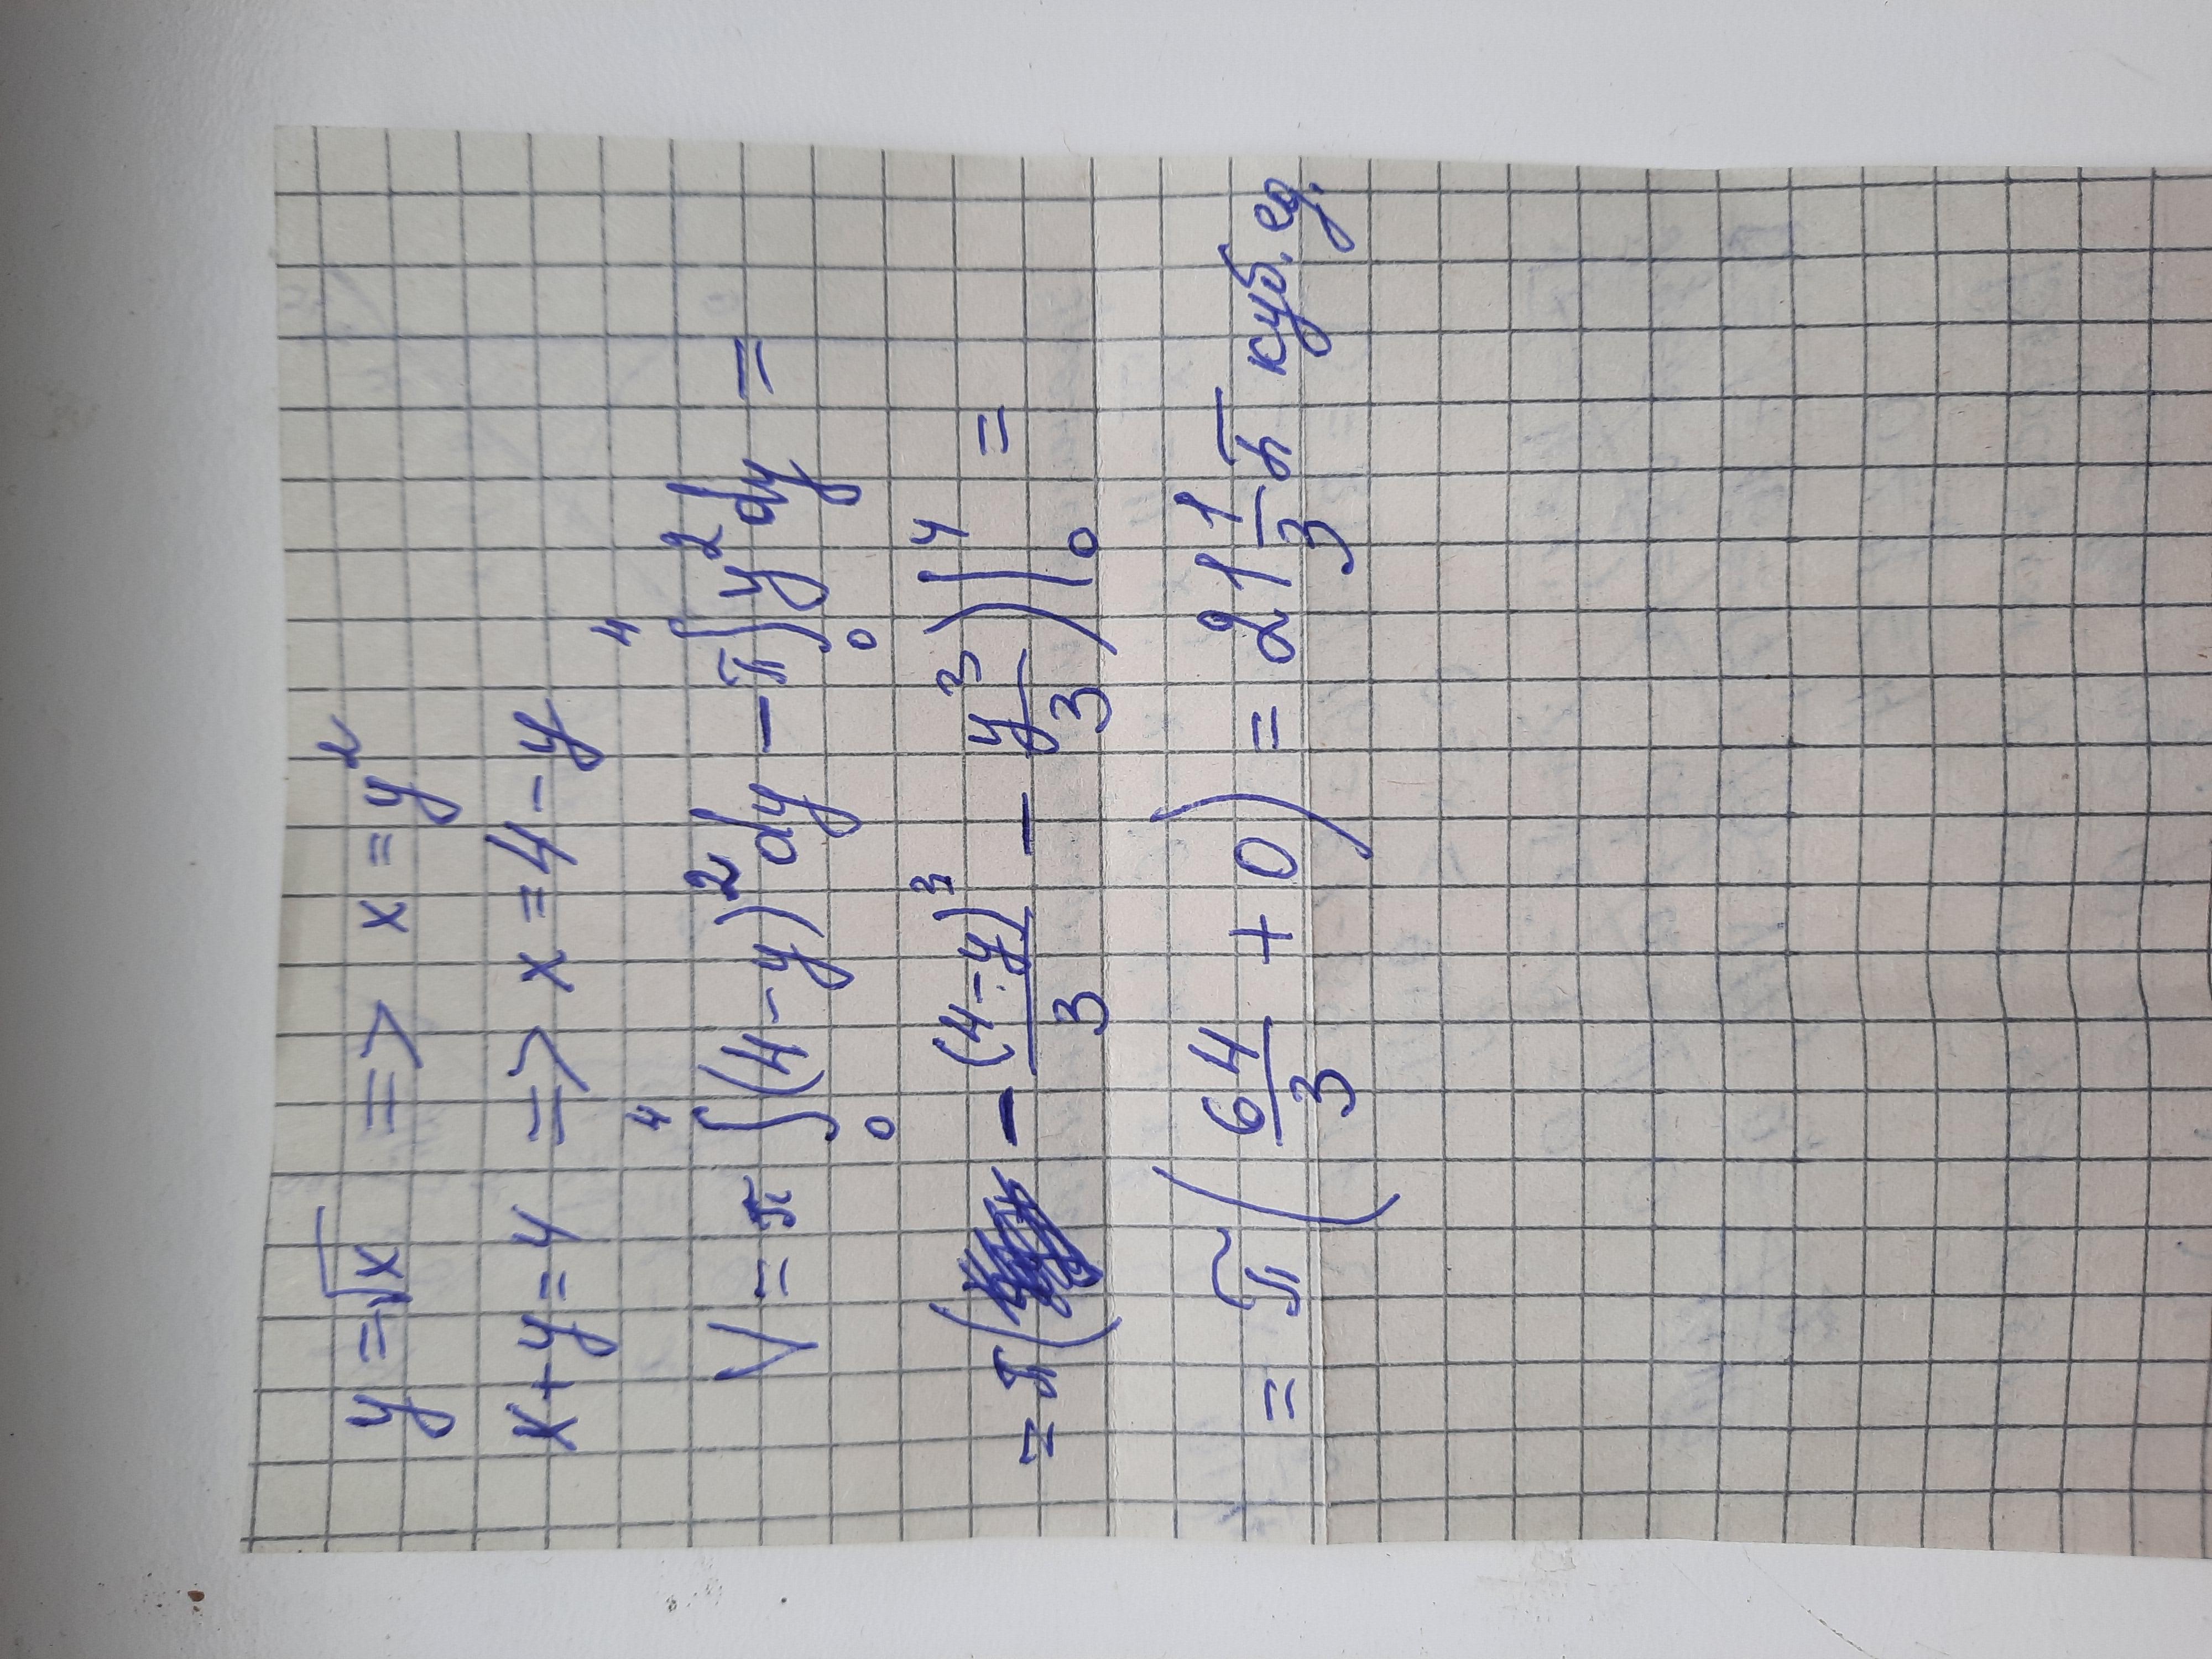 y = √x => x = y²
x + y = 4 => x = 4 - y
V = π ∫₀⁴ (4 - y)² dy - π ∫₀⁴ y² dy =
= π ( - (4 - y)³/3 - y³/3 ) |₀⁴ =
= π ( 64/3 + 0 ) = 21 1/3 π куб. ед.